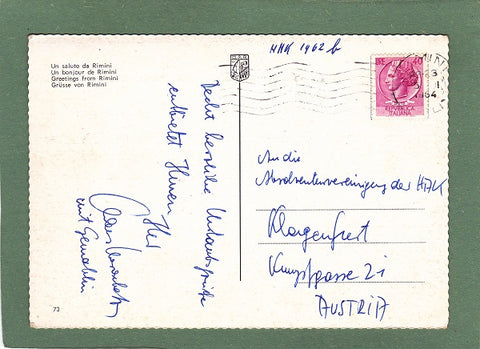 Un saluto da Rimini
Un bonjour de Rimini
Greetings from Rimini
Grüsse von Rimini
HAK 1962 b
Recht herzliche Urlaubsgrüße
entbietet Ihnen
Ihr
mit Gemahlin
An die
Absolventenvereinigung der HAK
Klagenfurt
Kumpfgasse 21
AUSTRIA
LIRE 40
REPUBBLICA
ITALIANA
1964
73